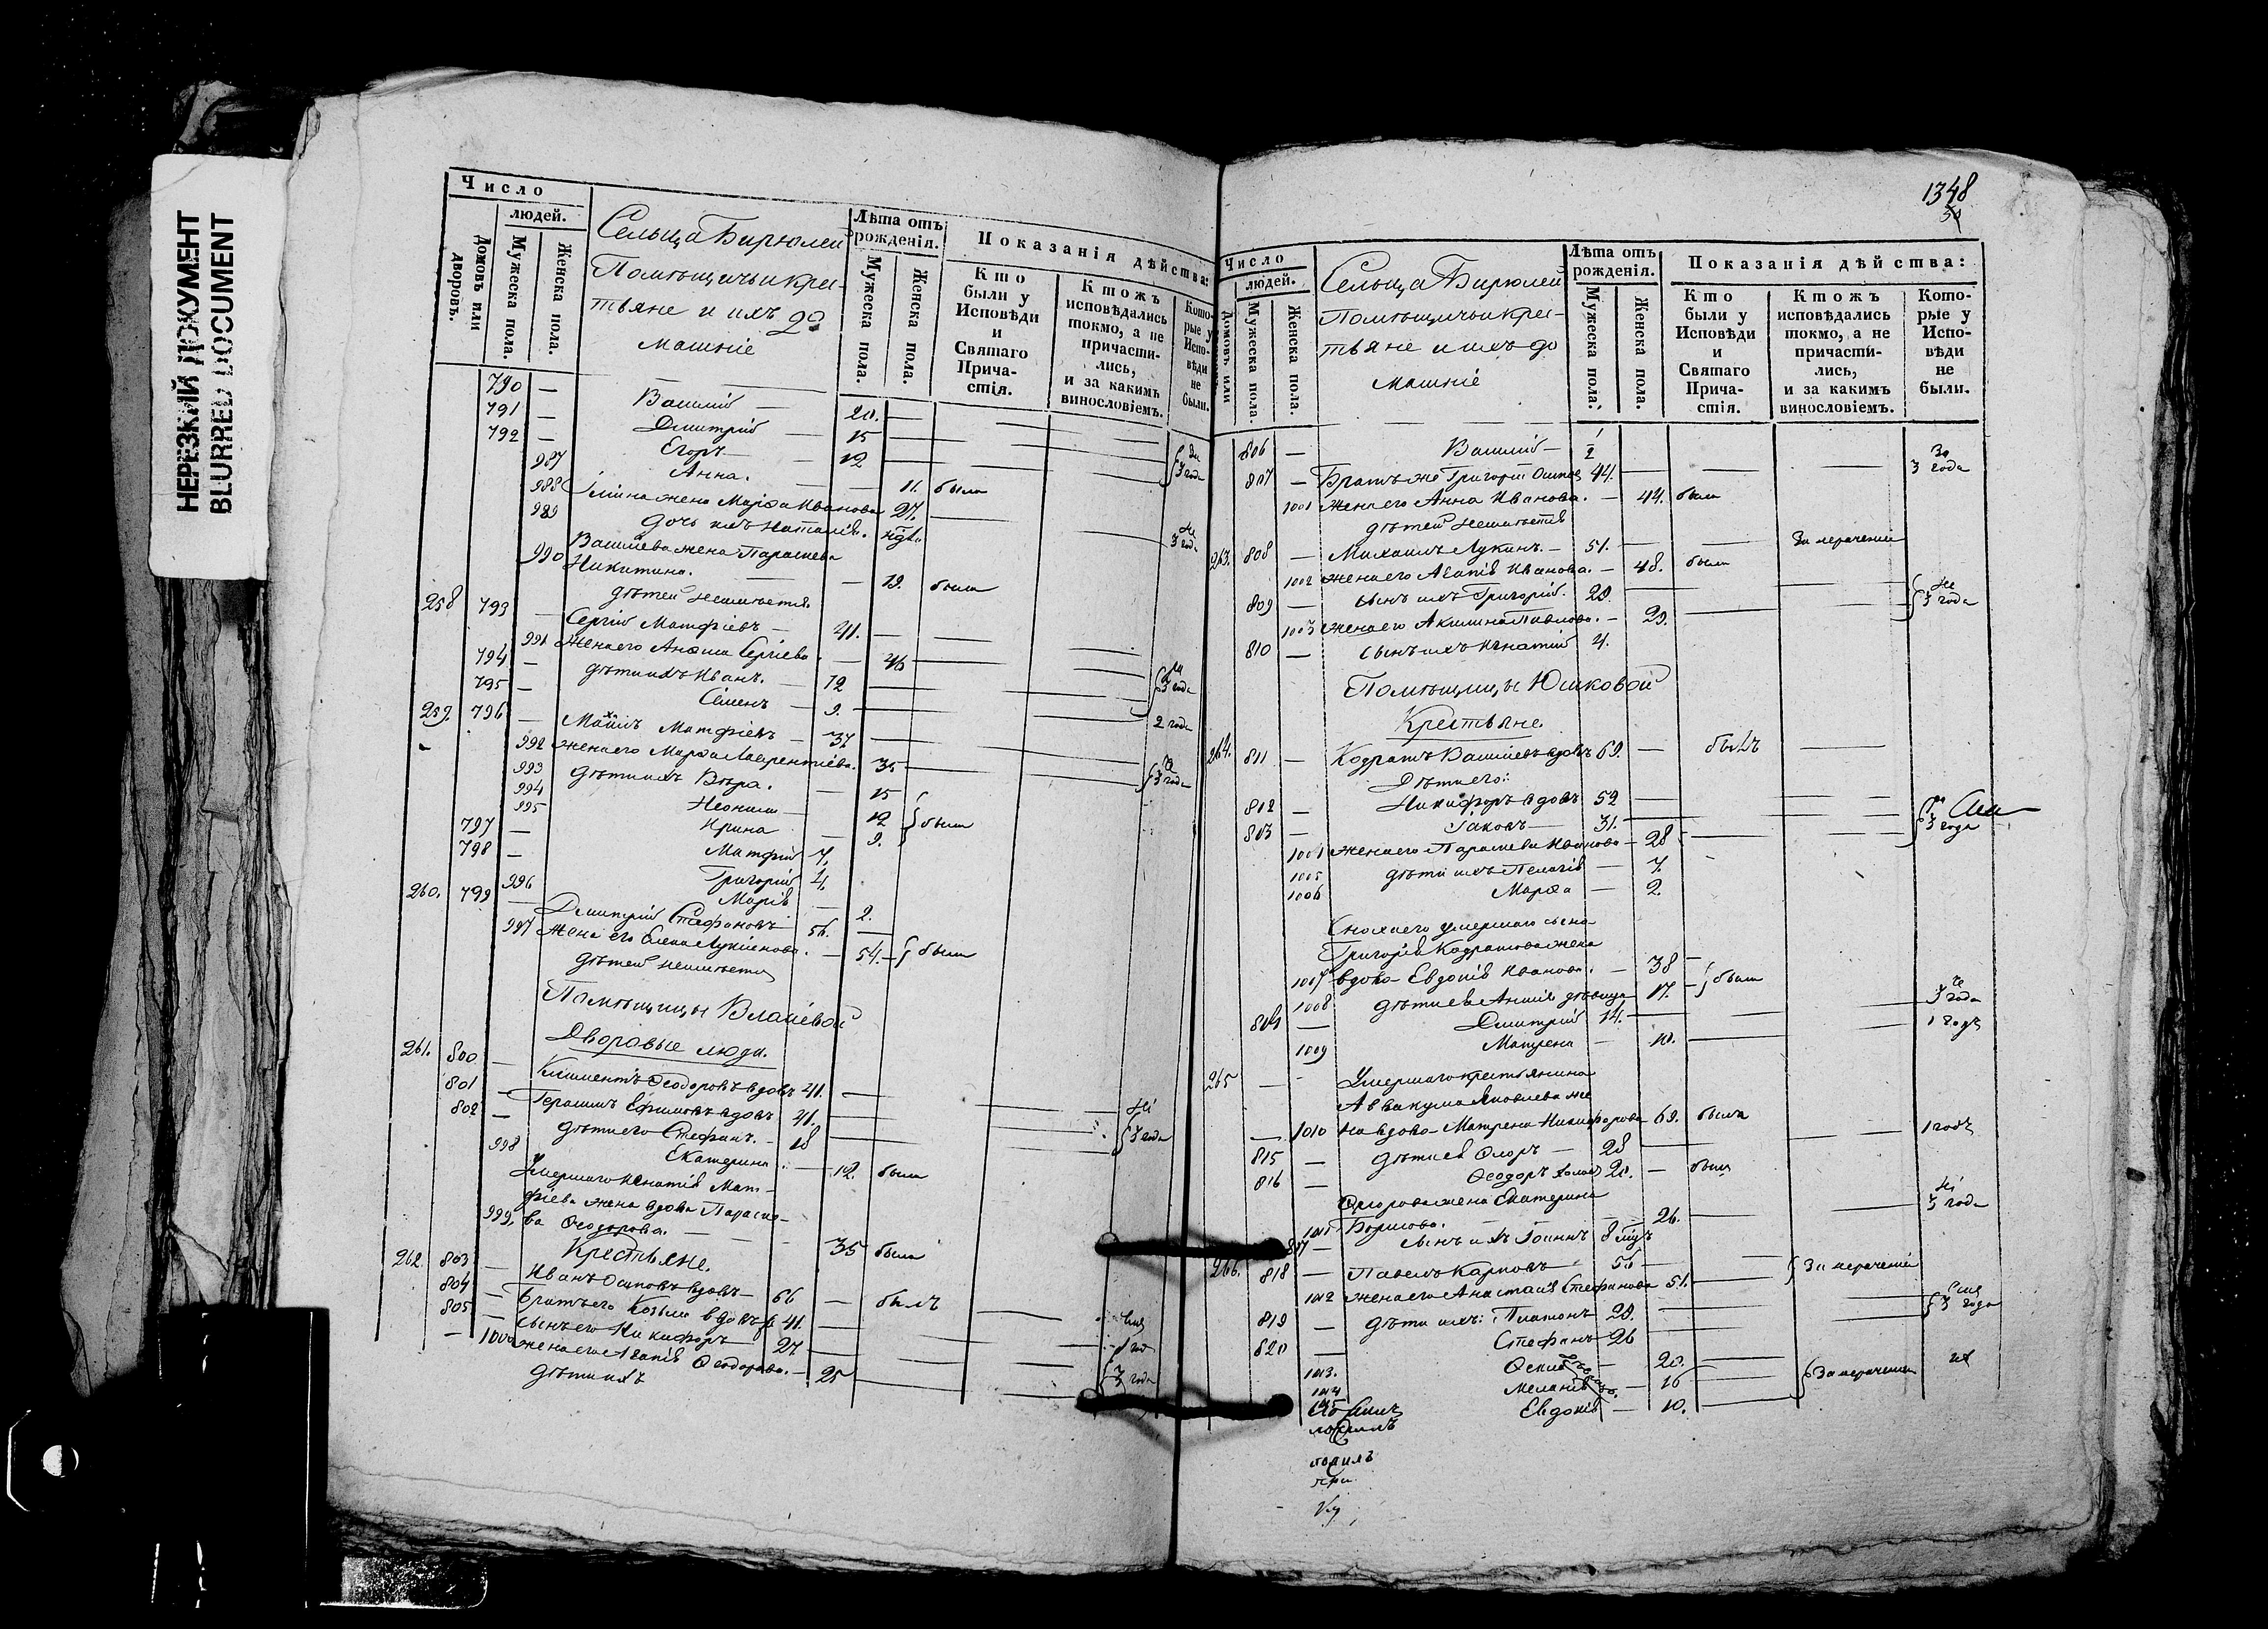 НЕРЕЗКИЙ ДОКУМЕНТ
BLURRED DOCUMENT
Число
людей.
Домовъ или дворовъ.
Мужеска пола.
Женска пола.
Сельца Бирюлей
Помѣщичьи крес-
тьяне и ихъ до
машніе
Лѣта отъ рожденія.
Мужеска пола.
Женска пола.
Показанія дѣйства:
Кто были у Исповѣди и Святаго Прича-стія.
Ктожъ исповѣдались токмо, а не причасти-лись, и за какимъ винословіемъ.
Кото-рые у Испо-вѣди не были.
790 — Василій — 20.
791 — Дмитрій — 15
792 — Егоръ — 12
987 Анна. — 11. была
988 жена Марѳа Иванова 27.
989 дочь ихъ Наталія.
3 года
Василіева жена Параскева
990 Никитина. — 19. была
дѣтей неимѣетъ.
258 793 — Сергій Матфіевъ — 41.
991 Жена его Анѳиса Сергіева — 46
794 — дѣти ихъ Иванъ. — 12
795 — Сѵменъ — 9.
3 года
259. 796 — Матфіевъ — 37
2 года
992 жена его Марѳа Лаврентіева. 35
993 дѣти ихъ Вѣра. — 15
3 года
994 Неонила — 12
995 Ирина — 9. были
797 — Матфій 7.
798 — Григорій 4.
996 Марія — 2.
260. 799 — Дмитрій Стефановъ 56.
997 Жена его Елена Лукіянова. — 54. были
дѣтей неимѣетъ
Помѣщицы
Дворовые люди.
261. 800 — Климентъ Ѳеодоровъ вдовъ 41.
801 — Герасимъ Ефимовъ вдовъ 41.
802 — дѣти его Стефанъ. — 18
3 года
998 Екатерина. — 12. была
Умершаго Игнатія Мат-
фіева жена вдова Параске-
999. ва Ѳеодорова. — 35 была
Крестьяне.
262. 803 — Иванъ Осиповъ вдовъ — 66 — былъ
804 — Братъ его Козьма вдовъ 41.
805 — сынъ его Никифоръ — 27
— 1000 жена его Агапія Ѳеодорова. — 25
3 года
дѣти ихъ
1348
Число
людей.
Домовъ или
Мужеска пола
Женска пола.
Сельца Бирюлей
Помѣщичьи крес-
тьяне и ихъ до
машніе
Лѣта отъ рожденія.
Мужеска пола.
Женска пола.
Показанія дѣйства:
Кто были у Исповѣди и Святаго Прича-стія.
Ктожъ исповѣдались токмо, а не причасти-лись, и за какимъ винословіемъ.
Кото-рые у Испо-вѣди не были.
806 — Василій — 1/2
807 — Братъ же Григорій 44.
3 года
1001 Жена его Анна Иванова. — 44. была
дѣтей неимѣетъ
263. 808 — Михаилъ Лукинъ. — 51. За нераченіе
1002 жена его Агапія Иванова. — 48. была
809 — сынъ ихъ Григорій. 29.
3 года
1003 жена его Акилина Павлова. — 29.
810 — сынъ ихъ Игнатій 4.
Помѣщицы Юшковой
Крестьяне.
264. 811 — Кодратъ Василіевъ вдовъ 69. — былъ
Дѣти его:
812 — Никифоръ вдовъ 52
813 — Іаковъ — 31.
3 года
1004 жена его Параскева Иванова — 28
1005 дѣти ихъ Пелагія — 7.
1006 Марѳа — 2.
Сноха его умершаго сына
Григорія Кодратова жена
1007 вдова Евдокія Иванова. — 38
1008 дѣвица — 17. были
3 года
814 — Дмитрій 14.
1 годъ
1009 Матрена — 10.
265 — Умершаго крестьянина
Аввакума Яковлева же
— 1010 на вдова Матрена Никифорова 69. была
815 — дѣти ея Флоръ — 28
1 годъ
816 — Ѳеодоръ холос 20. — былъ
Флорова жена Екатерина
1011 Борисова. — 26.
3 года
817 — сынъ ихъ Іоаннъ 8
266. 818 — Павелъ Карповъ — 50 За нераченіе
1012 жена его Анастасія Стефанова 51.
819 — дѣти ихъ: Платонъ 29.
3 года
820 — Стефанъ 26
1013. — 20.
1014 Меланія — 16 За нераченіе
1015 Евдокія — 10.